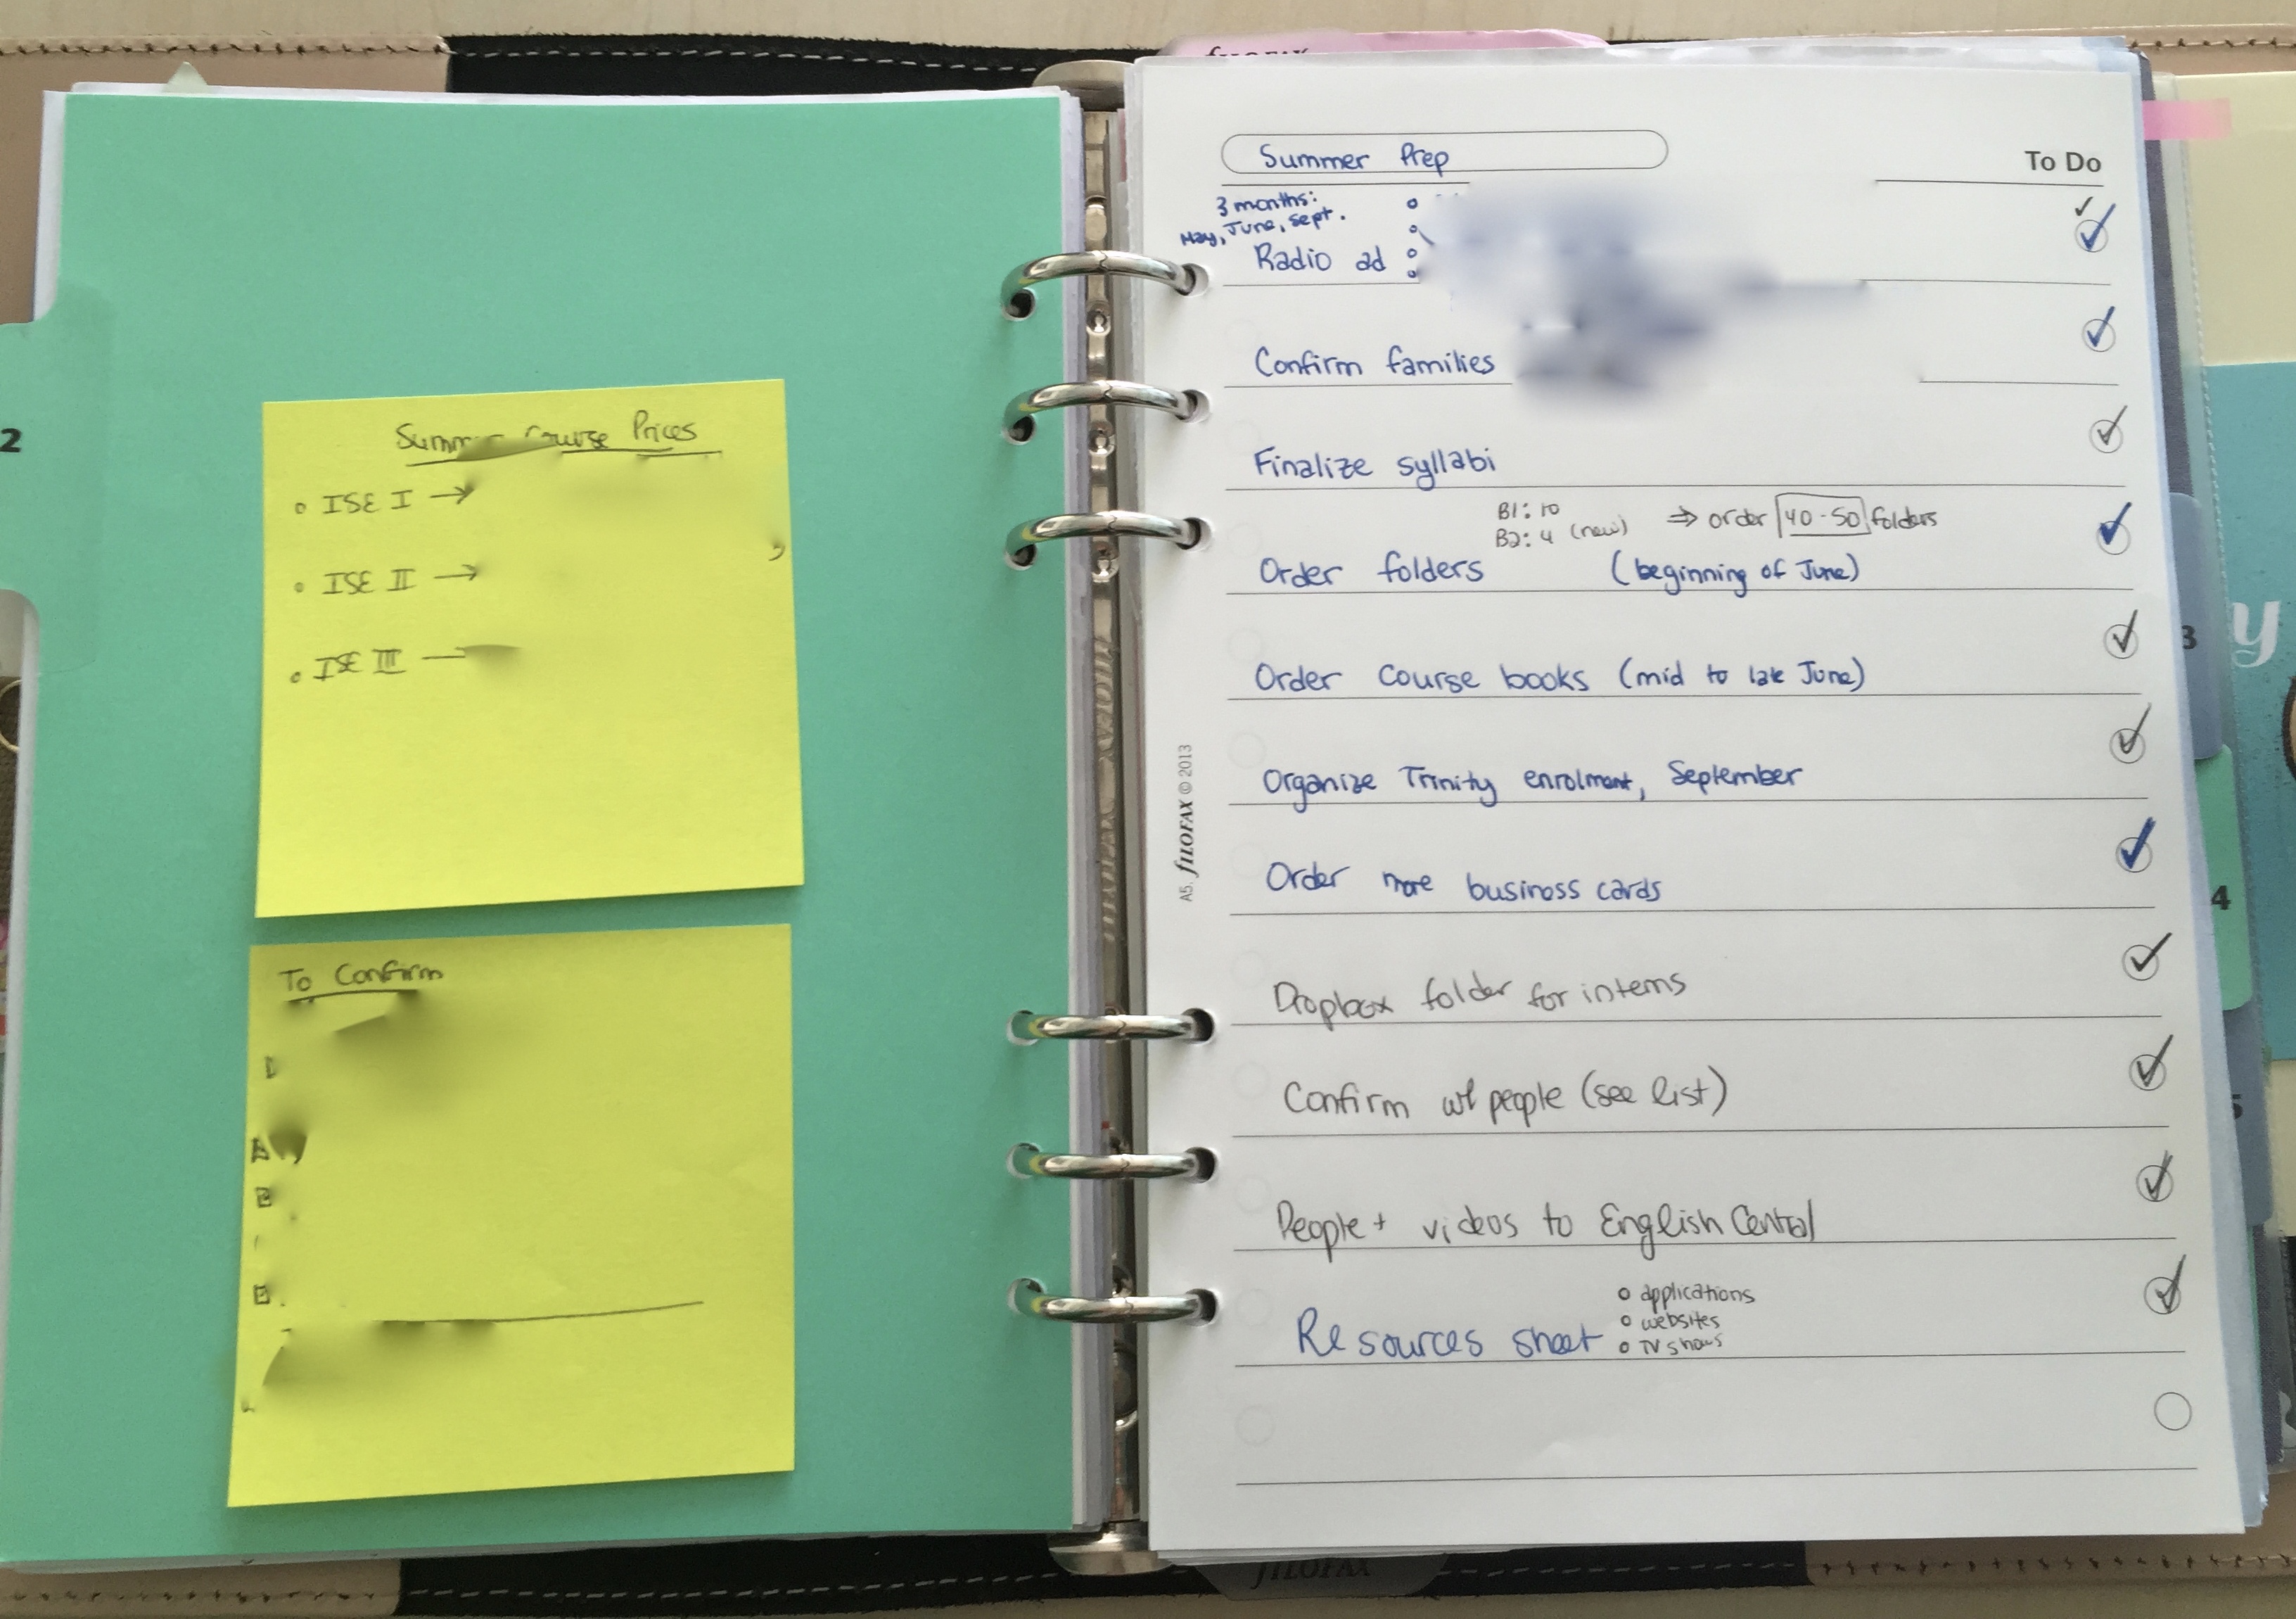 2
Summer Course Prices
ISE I →
ISE II →
ISE III —
To Confirm
fILOFAX
Summer Prep
To Do
3 months:
May, June, Sept.
Radio ad
Confirm families
Finalize syllabi
B1: 10
B2: 4 (new)
⇒ order 40-50 folders
Order folders (beginning of June)
Order course books (mid to late June)
Organize Trinity enrolment, September
Order more business cards
Dropbox folder for interns
Confirm w/ people (see list)
People + videos to English Central
Resources sheet
applications
websites
TV shows
A5. fILOFAX © 2013
3
y
4
5
fILOFAX